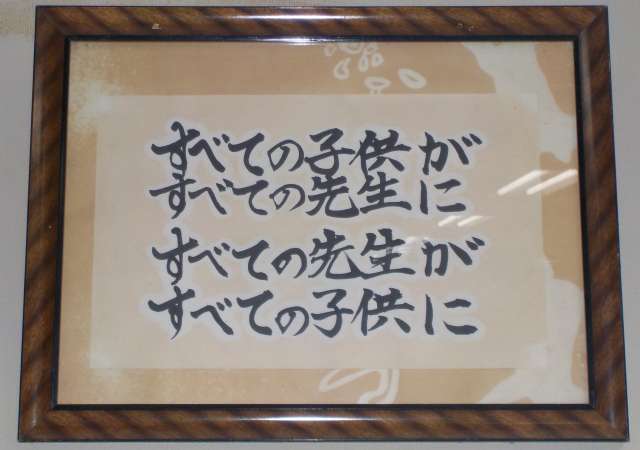 すべての子供が
すべての先生に
すべての先生が
すべての子供に